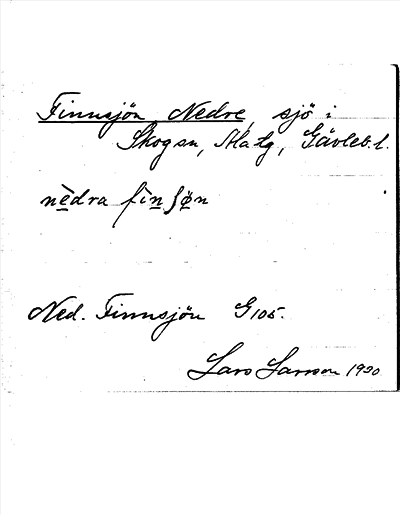 Finnsjön, Nedre, sjö i
Skogsn, Matg, Gävleb. l.
nèdra fìnʃøn
Ned. Finnsjön G 105.
Lars Larsson 1930